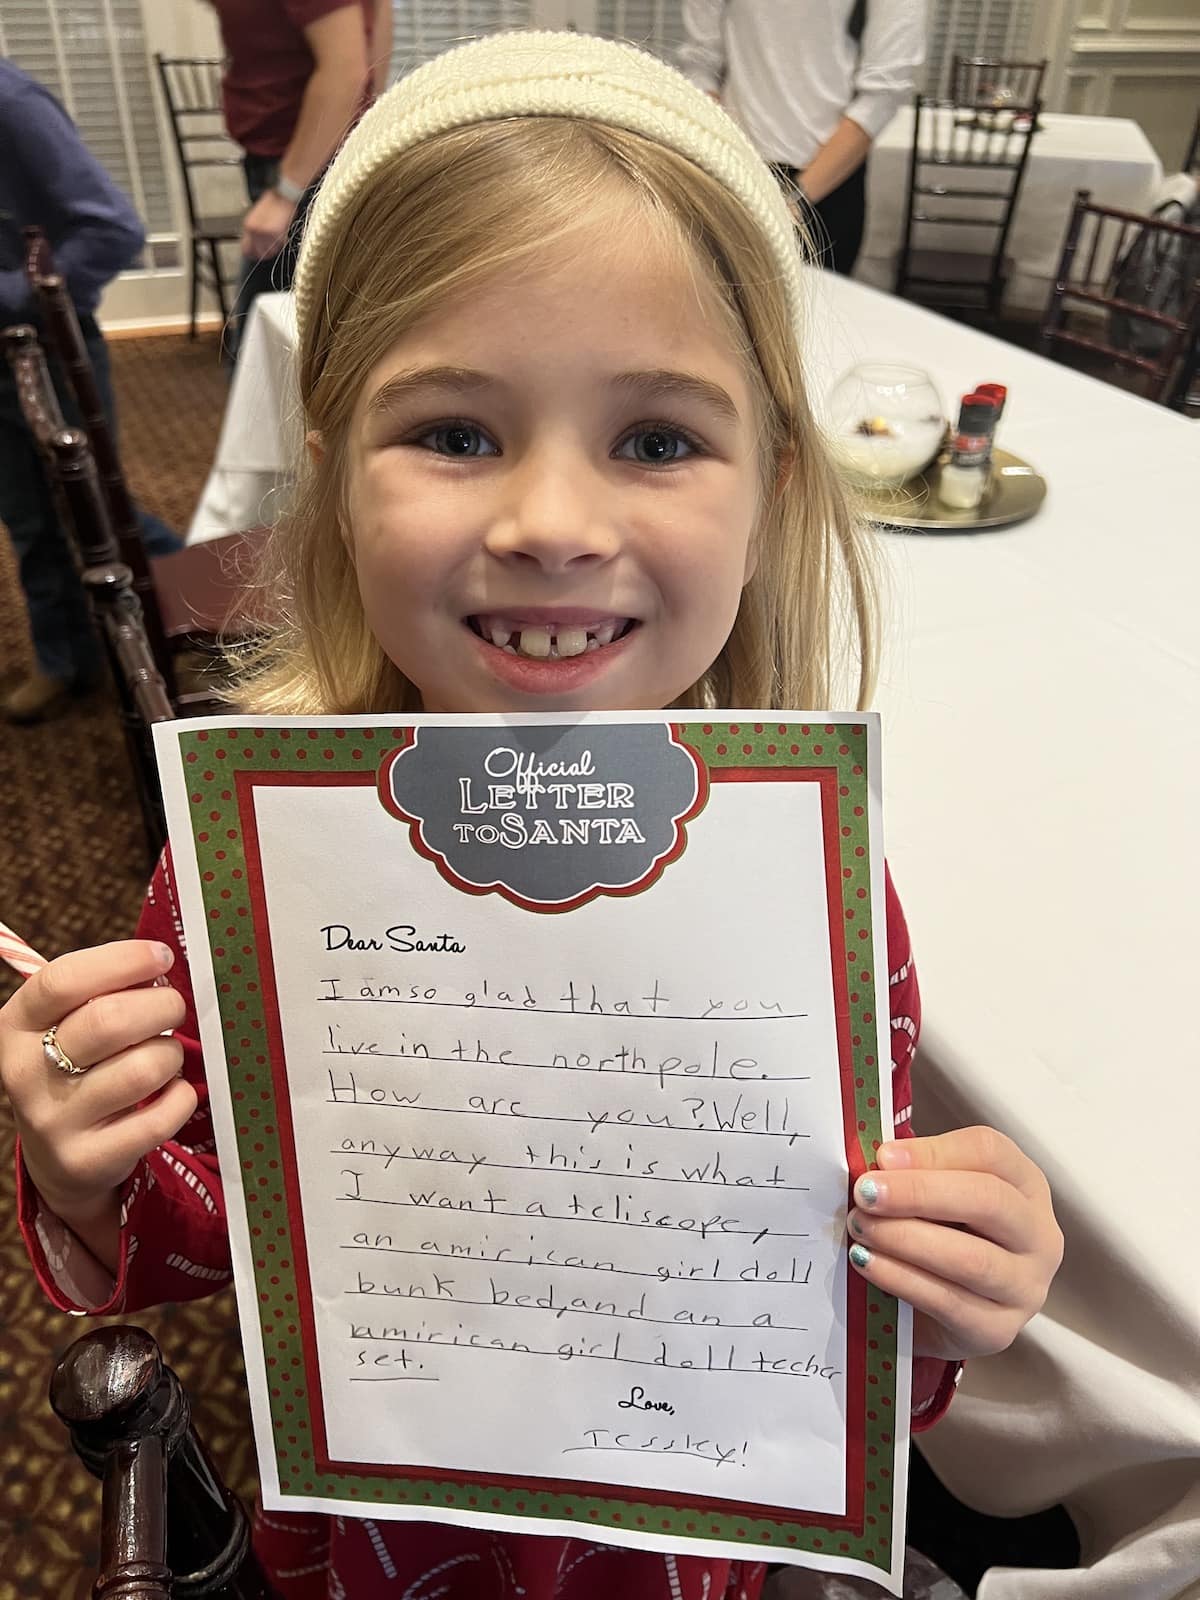 Official
LETTER
TO SANTA
Dear Santa
I am so glad that you
live in the north pole.
How are you? Well,
anyway this is what
I want a teliscope,
an amirican girl doll
bunk bed, and an a
amirican girl doll techer
set.
Love,
Tessley!